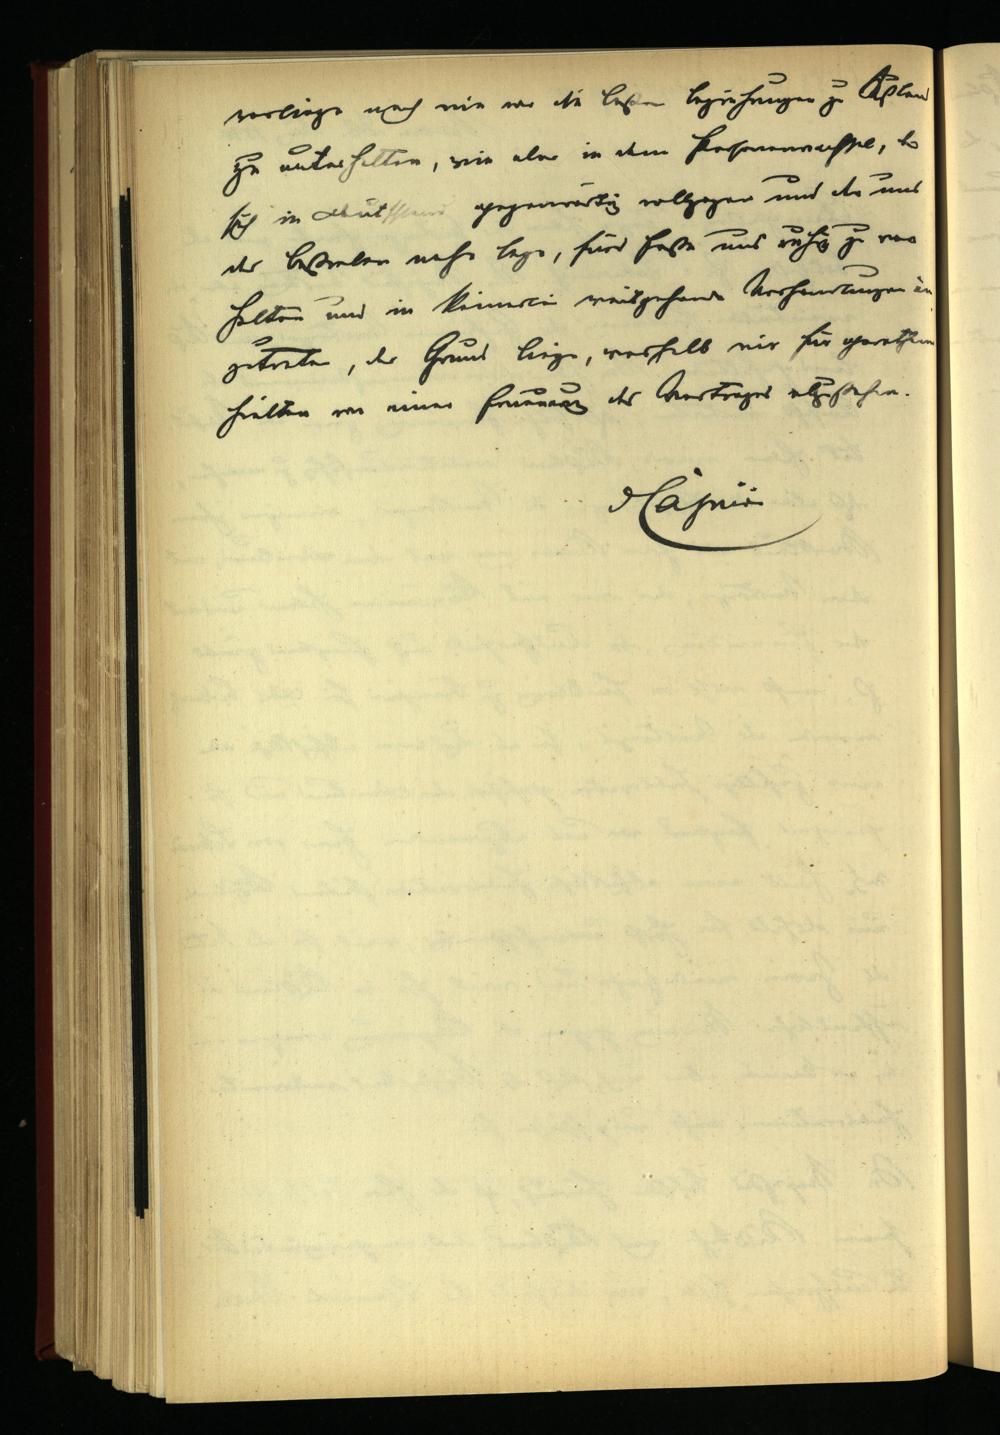 vorliege nach wie vor die besten Beziehungen zu Rußland
zu unterhalten, wie aber in dem Personenwechsel, der
sich in Deutschland gegenwärtig vollzogen und der uns
das Bestreben nahe lege, fürs Erste uns ruhig zu ver
halten und in keinerlei weitgehende Verhandlungen ein
zutreten, der Grund liege, weshalb wir für gerathen
hielten von einer Erneuerung des Vertrages abzusehen.
vCaprivi